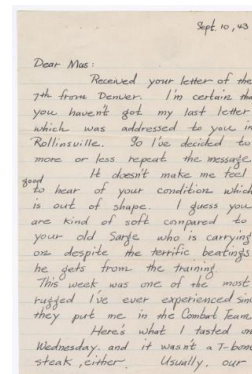 Sept. 10, 43
Dear Mas:
Received your letter of the
7th from Denver. I'm certain tha
you haven't got my last letter
which was addressed to you in
Rollinsville. So I've decided to
more or less repeat the message.
It doesn't make me feel
good
to hear of your condition which
is out of shape. I guess you
are kind of soft compared to
your old Sarge who is carrying
on despite the terrific beatings
he gets from the training.
This week was one of the most
rugged I've ever experienced sinc
they put me in the Combat Team.
Here's what I tasted on
Wednesday, and it wasn't a T-bone
steak, either. Usually, our